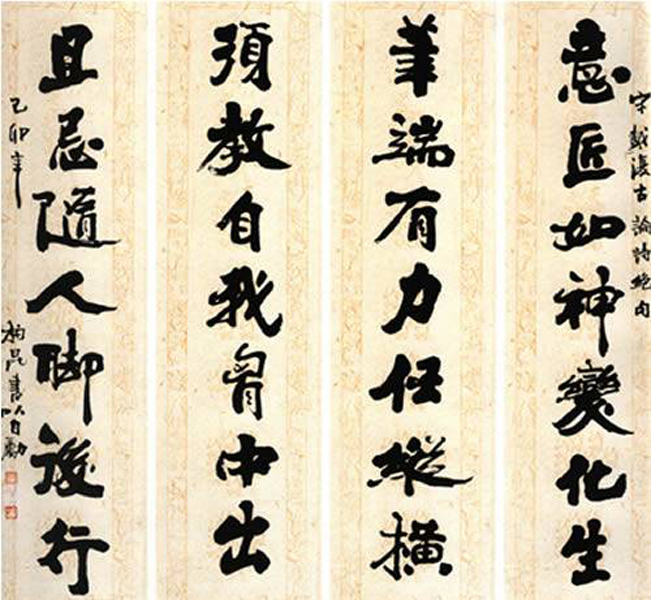 宋戴復古論詩絕句
意匠如神變化生
筆端有力任縱橫
須教自我胷中出
且忌隨人脚後行
己卯年
書以自